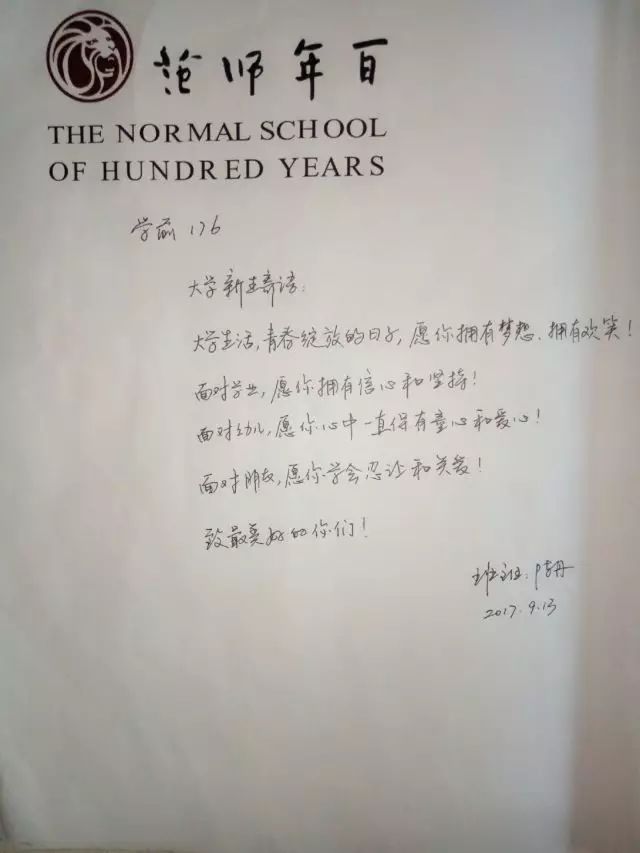 范师年百
THE NORMAL SCHOOL
OF HUNDRED YEARS
学前176
大学新生寄语:
大学生活,青春绽放的日子,愿你拥有梦想、拥有欢笑!
面对学业,愿你拥有信心和坚持!
面对幼儿,愿你心中一直保有童心和爱心!
面对朋友,愿你学会忍让和关爱!
致最美好的你们!
班主任:陆丹
2017.9.13